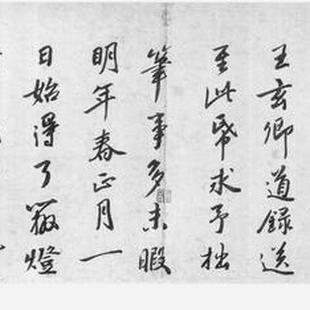 王玄卿道錄送
至此帋求予拙
筆事多未暇
明年春正月一
日始得了燈